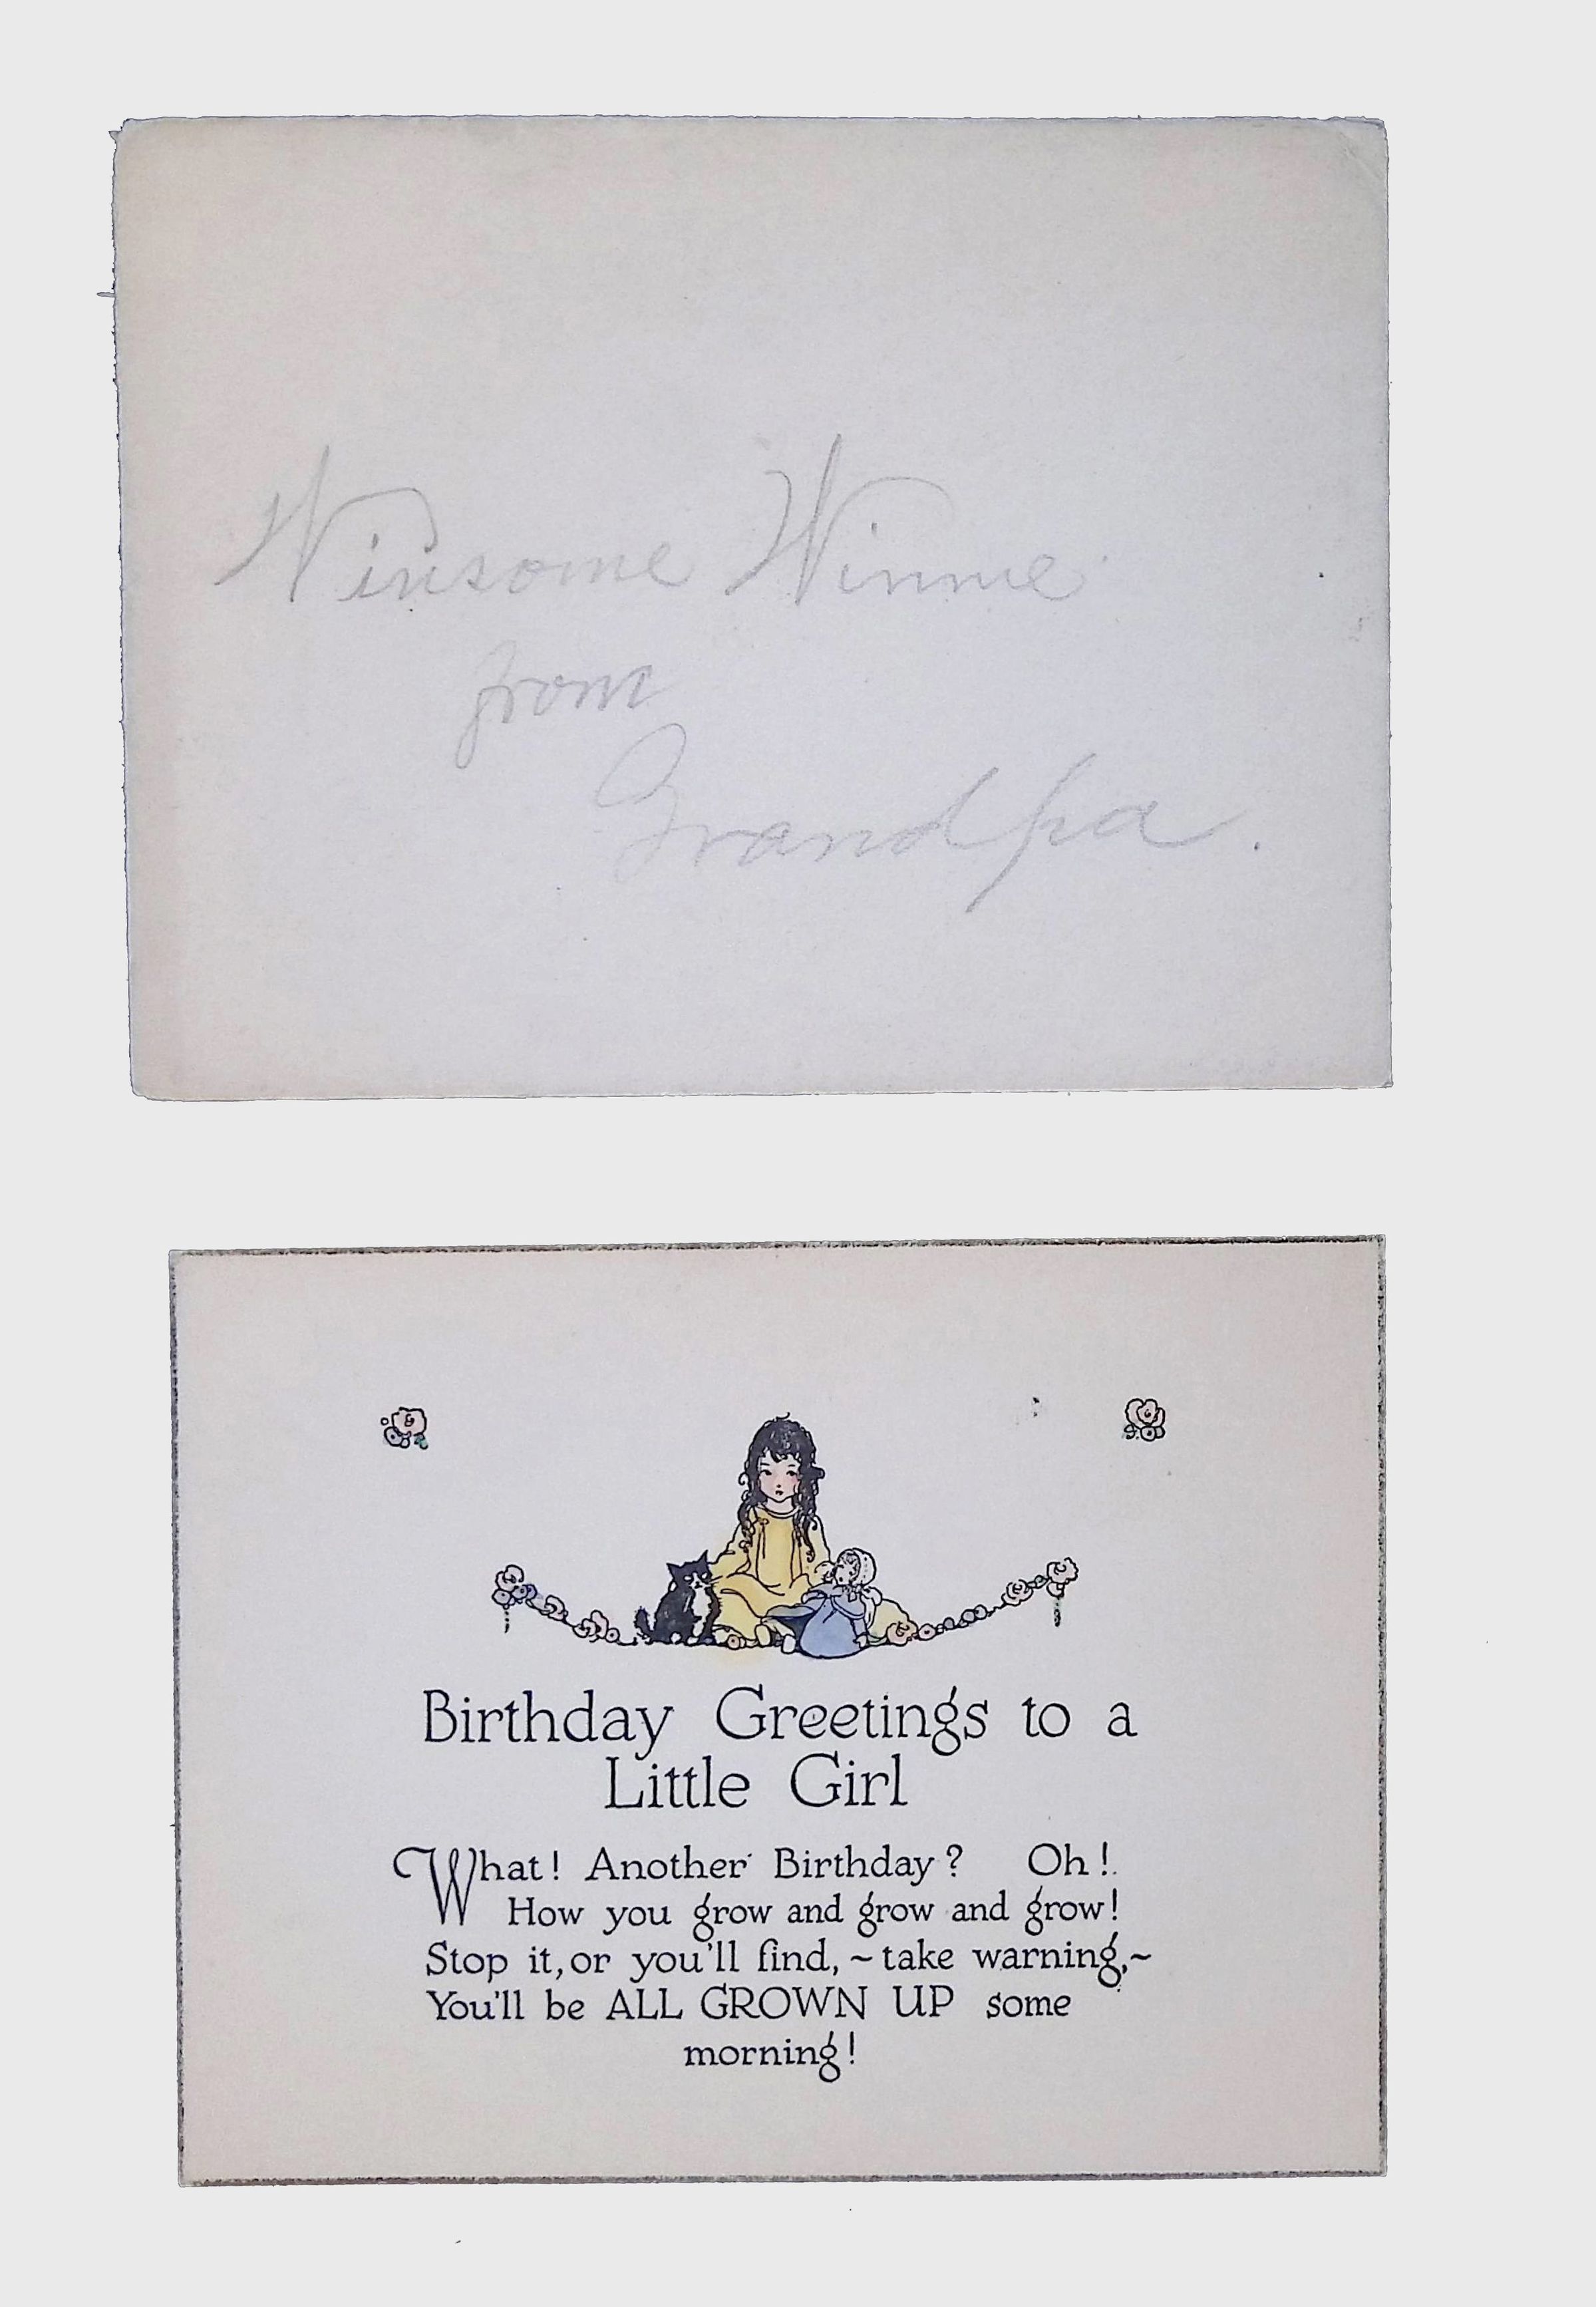 Winsome Winnie
from
Grandpa.
Birthday Greetings to a
Little Girl
What! Another Birthday? Oh!
How you grow and grow and grow!
Stop it, or you'll find, ~ take warning, ~
You'll be ALL GROWN UP some
morning!